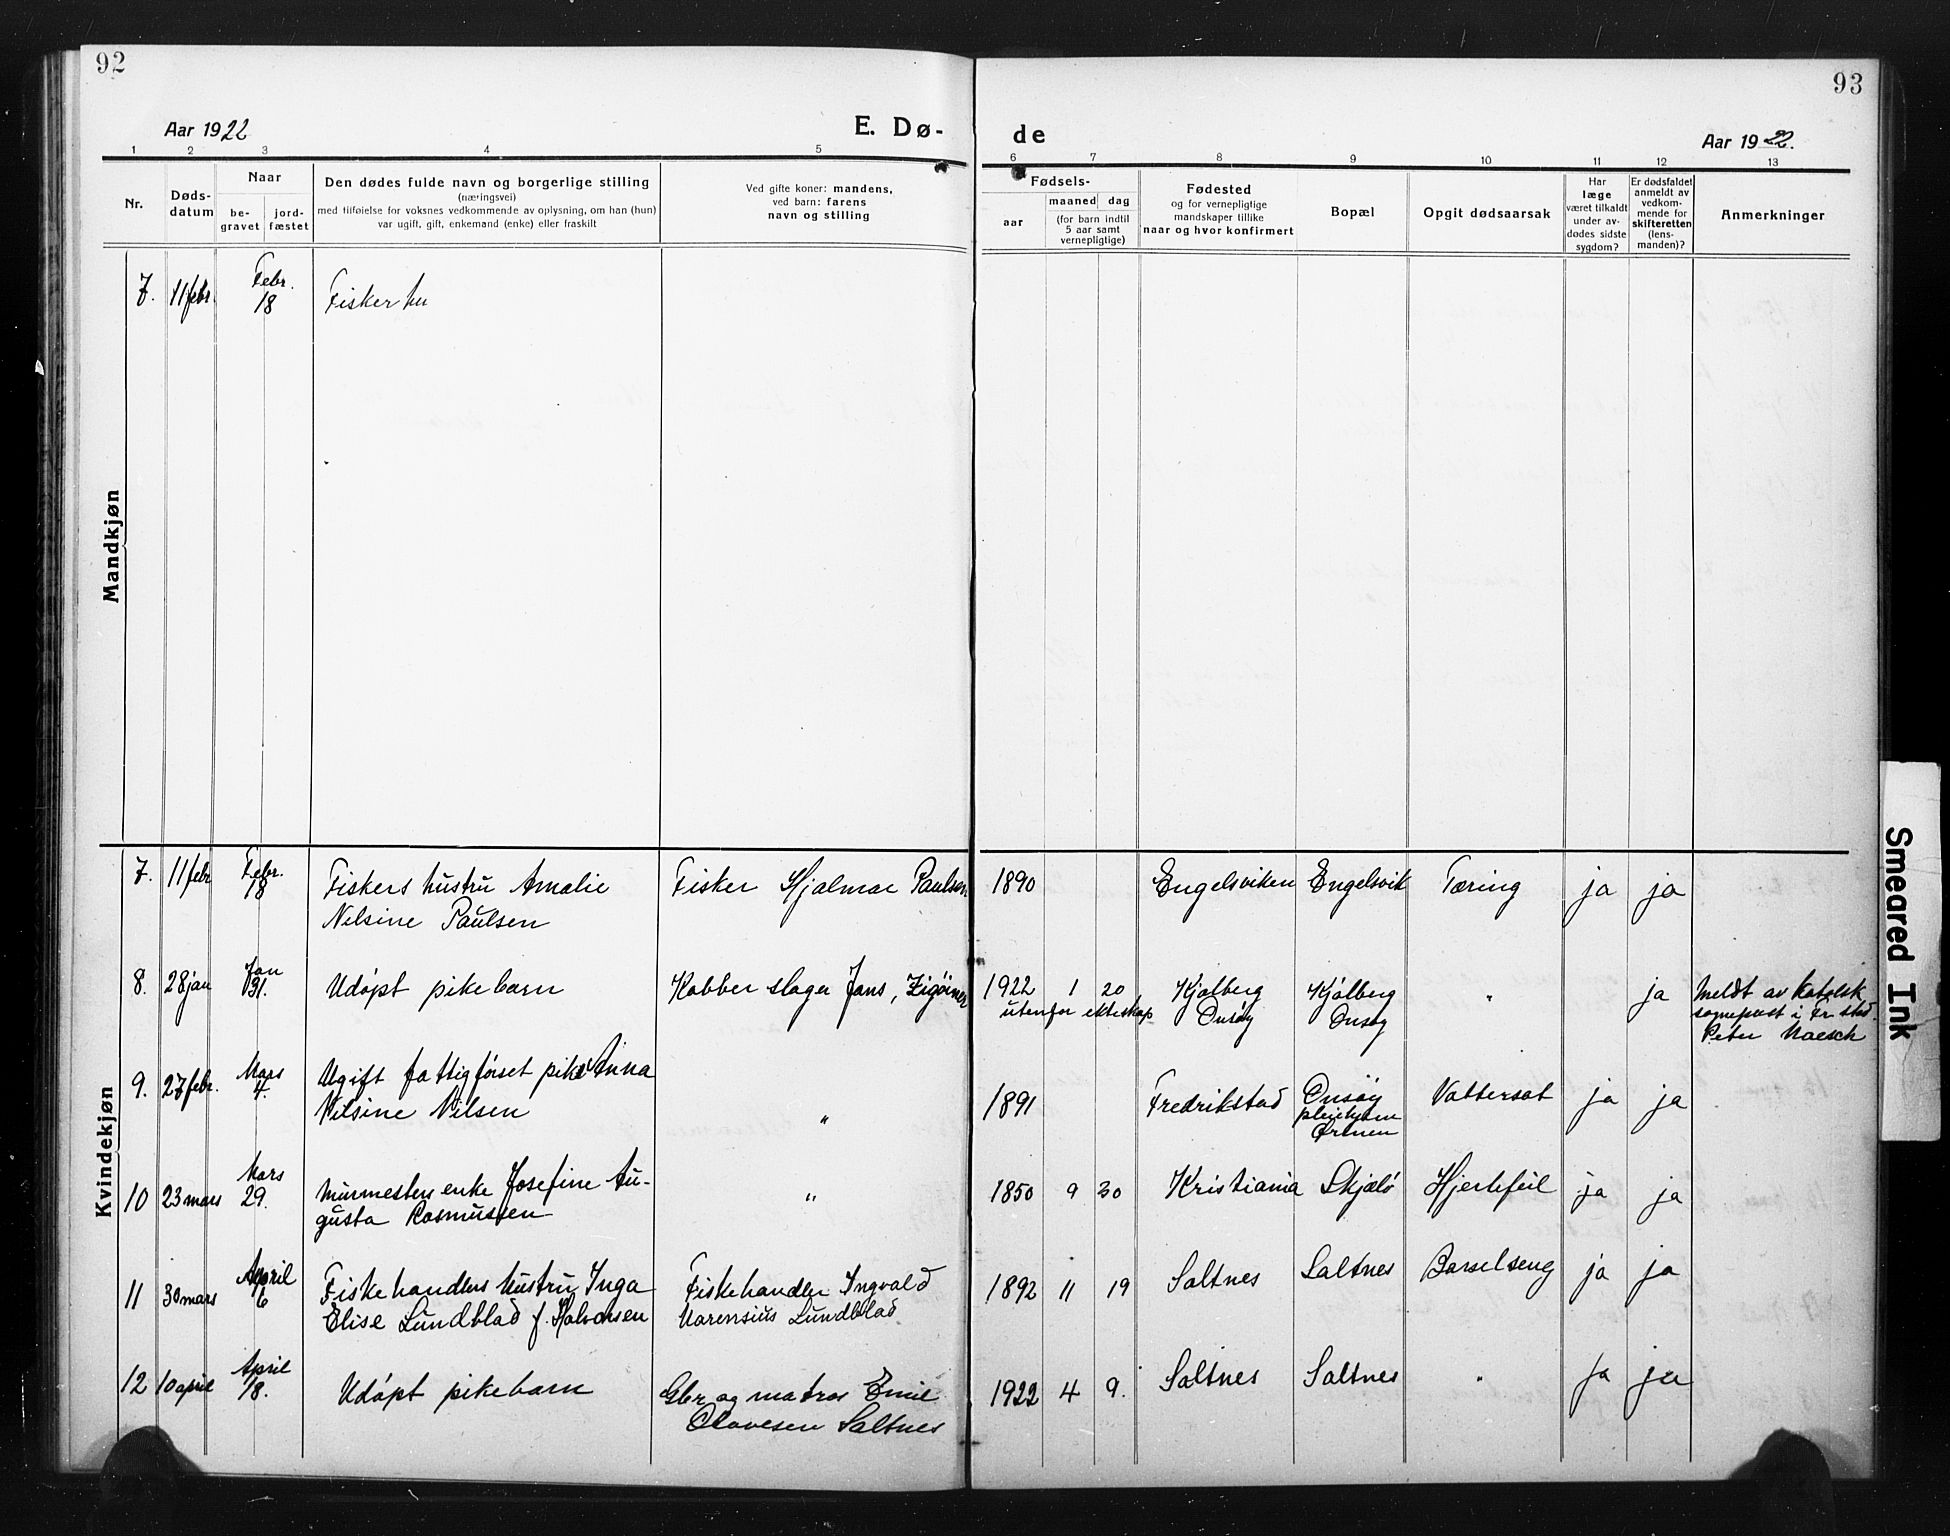 92
93
Aar 1922
E. Dø-
de
Aar 1922.
1 2 3 4 5 6 7 8 9 10 11 12 13
Nr.
Døds-
datum
Naar
be-
gravet
jord-
fæstet
Den dødes fulde navn og borgerlige stilling
(næringsvei)
med tilføielse for voksnes vedkommende av oplysning, om han (hun)
var ugift, gift, enkemand (enke) eller fraskilt
Ved gifte koner: mandens,
ved barn: farens
navn og stilling
Fødsels-
aar
maaned dag
(for barn indtil
5 aar samt
vernepligtige)
Fødested
og for vernepligtige
mandskaper tillike
naar og hvor konfirmert
Bopæl
Opgit dødsaarsak
Har
læge
været tilkaldt
under av-
dødes sidste
sygdom?
Er dødsfaldet
anmeldt av
vedkom-
mende for
skifteretten
(lens-
manden)?
Anmerkninger
Mandkjøn
7. 11 febr. Febr. 18 Fisker hu
Kvindekjøn
7. 11 febr Febr. 18 Fiskers hustru Amalie Fisker Hjalmar Paulsen 1890 Engelsviken Engelsvik Tæring ja ja
Nilsine Paulsen
8. 28 jan Jan 31. Udøpt pikebarn Kobber slager Jans, Zigøiner 1922 1 20 Kjølberg Kjølberg " ja Meldt av katolsk
utenfor ekteskap Onsøy Onsøy sogneprest i Fr.stad
Peter
9. 27 febr. Mars 4. Ugift fattigforset pike Anna 1891 Fredrikstad Onsøy Vattersot ja ja
Nilsine Nilsen " pleiehjem
Ørmen
10 23 mars Mars 29. Murmesters enke Josefine Au- " 1850 9 30 Kristiania Skjælø Hjertefeil ja ja
gusta Rasmussen
11 30 mars April 6 Fiskehandlers hustru Inga Fiskehandler Ingvald 1892 11 19 Saltnes Saltnes Barselseng ja ja
Elise Lundblad f. Halvorsen Lundblad
12 10 april April 18. Udøpt pikebarn Gbr og matros Emil 1922 4 9. Saltnes Saltnes " ja ja
Olavesen Saltnes
Smeared Ink